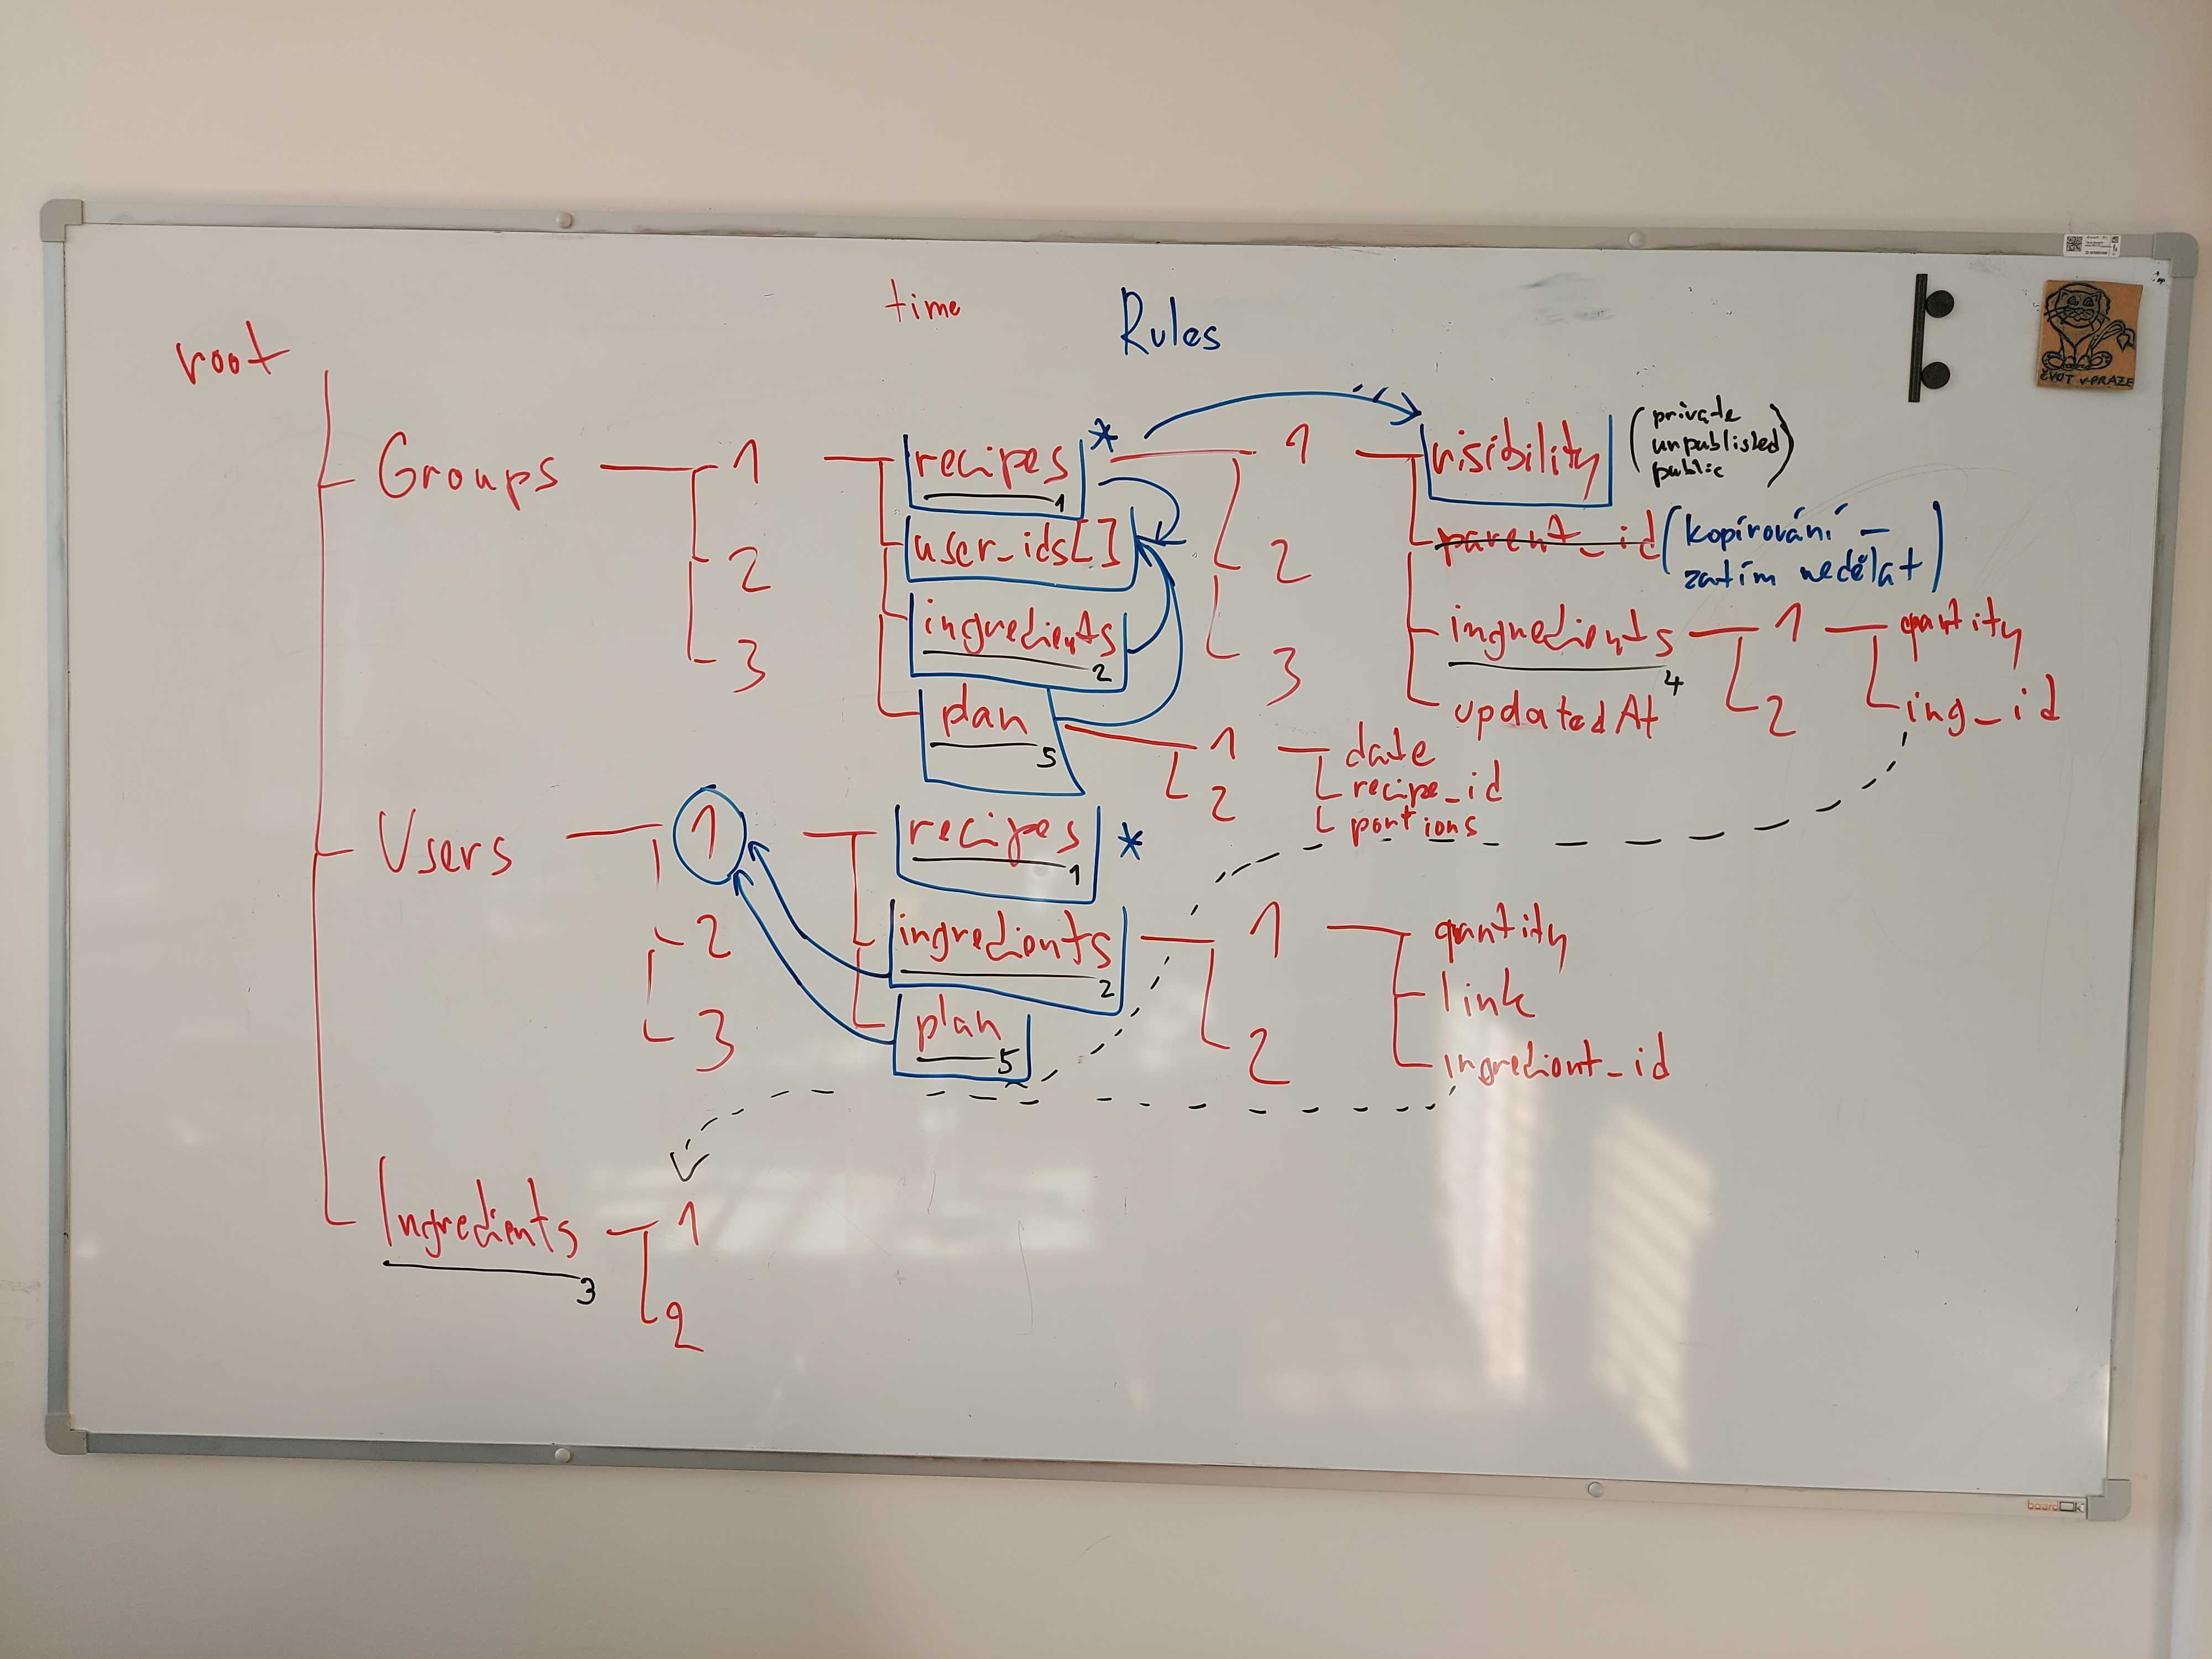 time
Rules
root
Groups
1
2
3
recipes *
1
user_ids[]
ingredients
2
plan
5
1
2
3
visibility
(private
unpublished
public)
parent_id
(kopírování -
zatím nedělat)
ingredients
4
1
2
qantity
ing_id
updatedAt
1
2
date
recipe_id
portions
Users
1
2
3
recipes *
1
ingredients
2
plan
5
1
2
qantity
link
ingrediont_id
Ingredients
3
1
2
ČVUT v PRAZE
boardOK